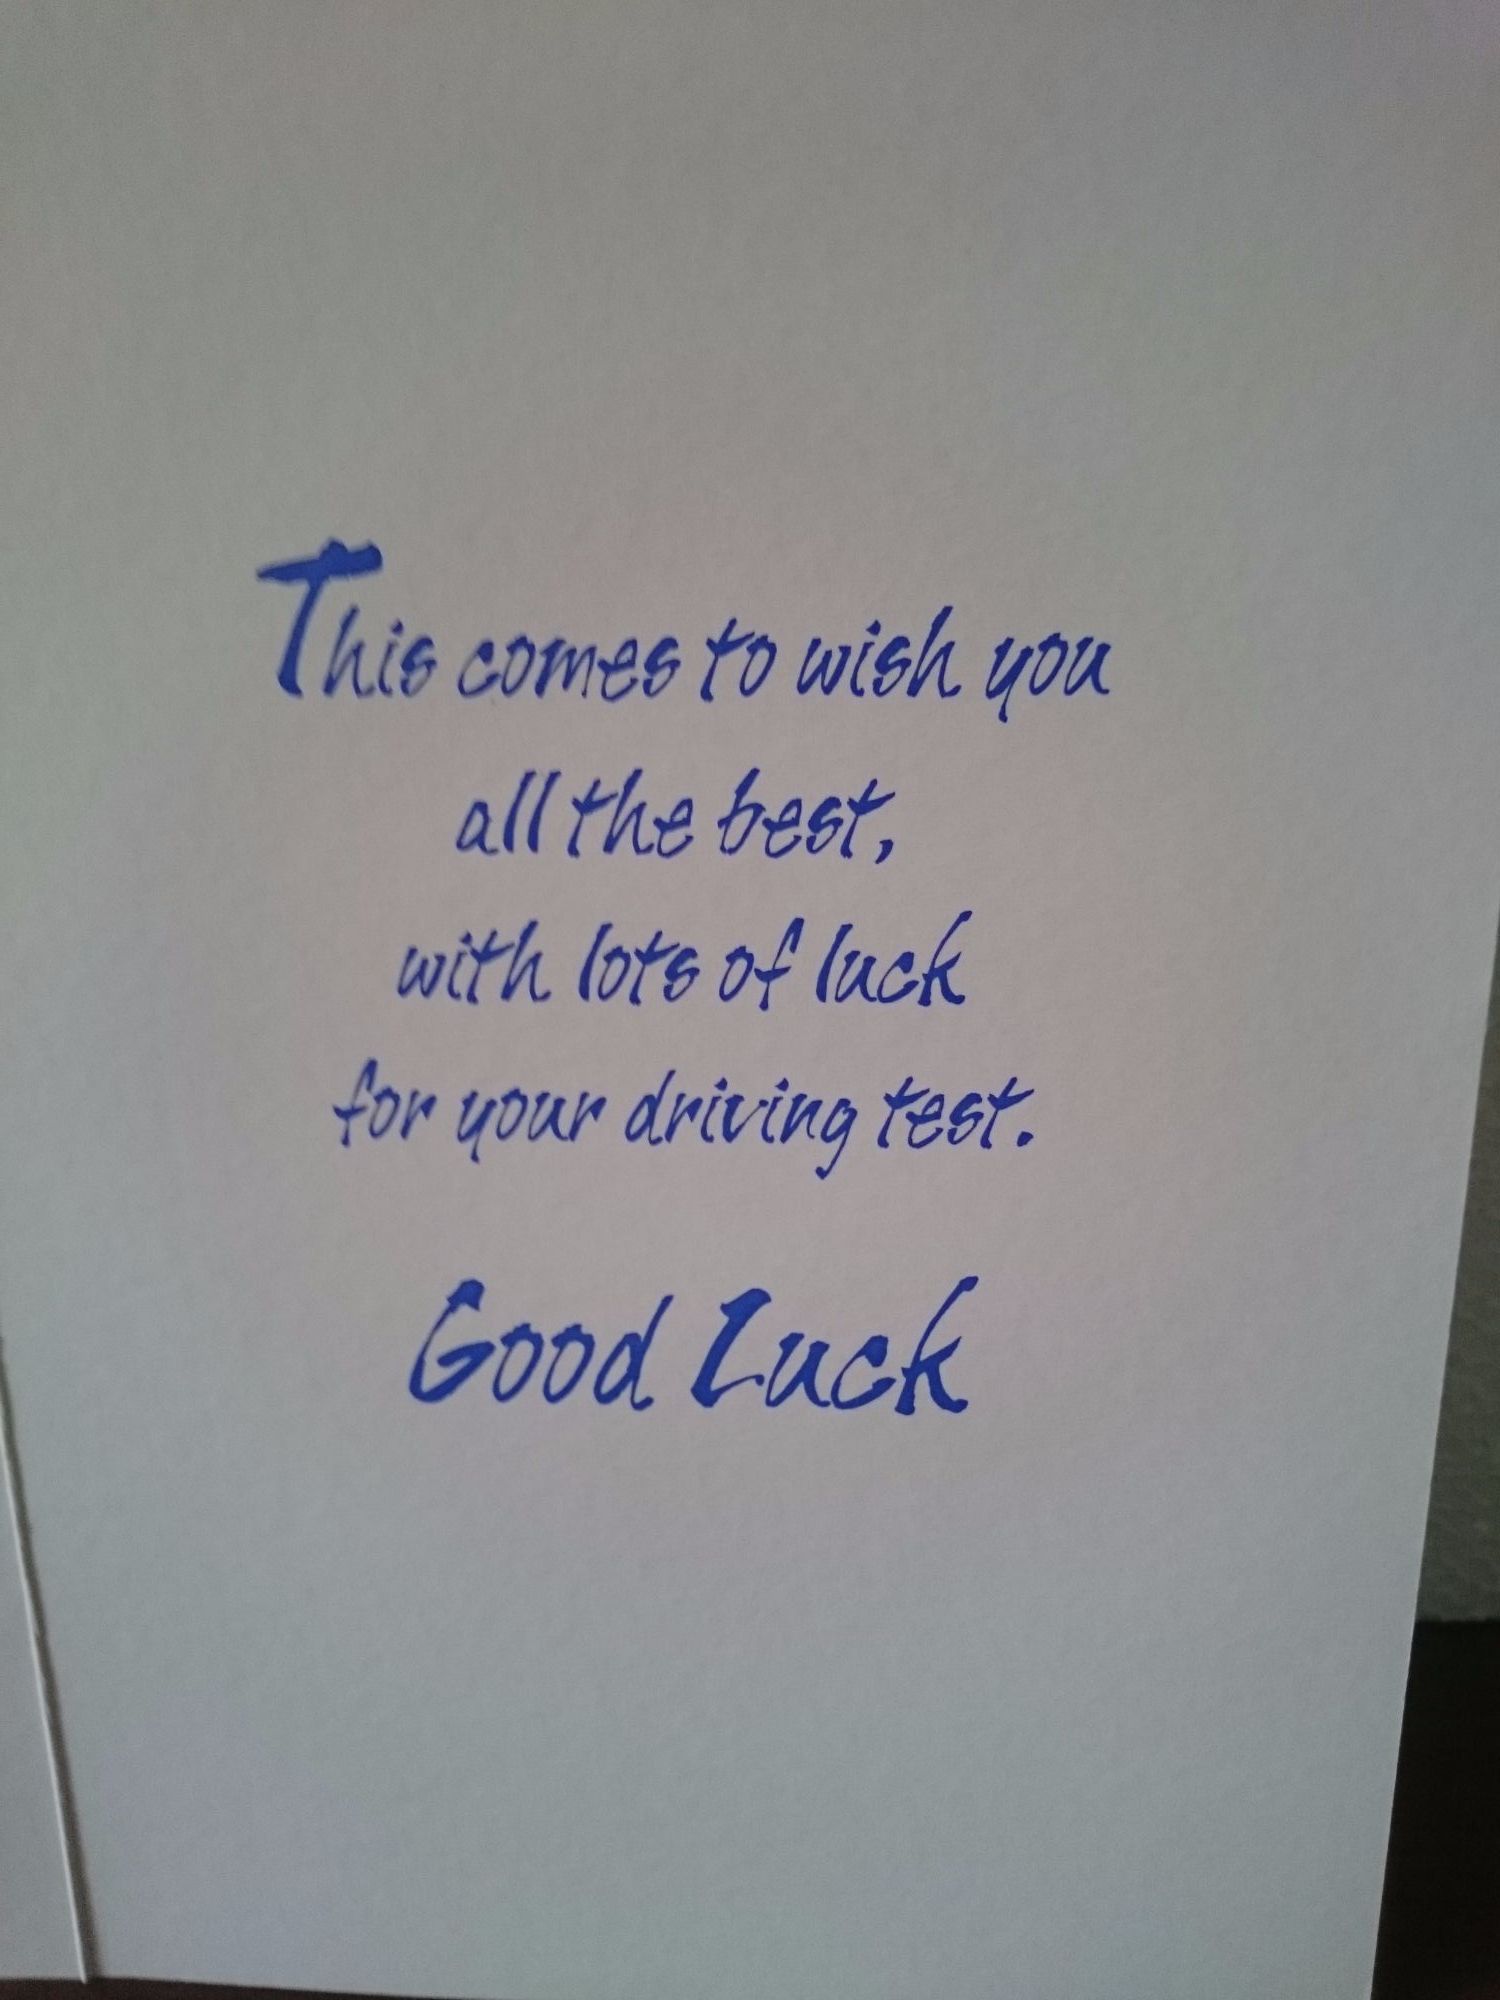 This comes to wish you
all the best,
with lots of luck
for your driving test.
Good Luck